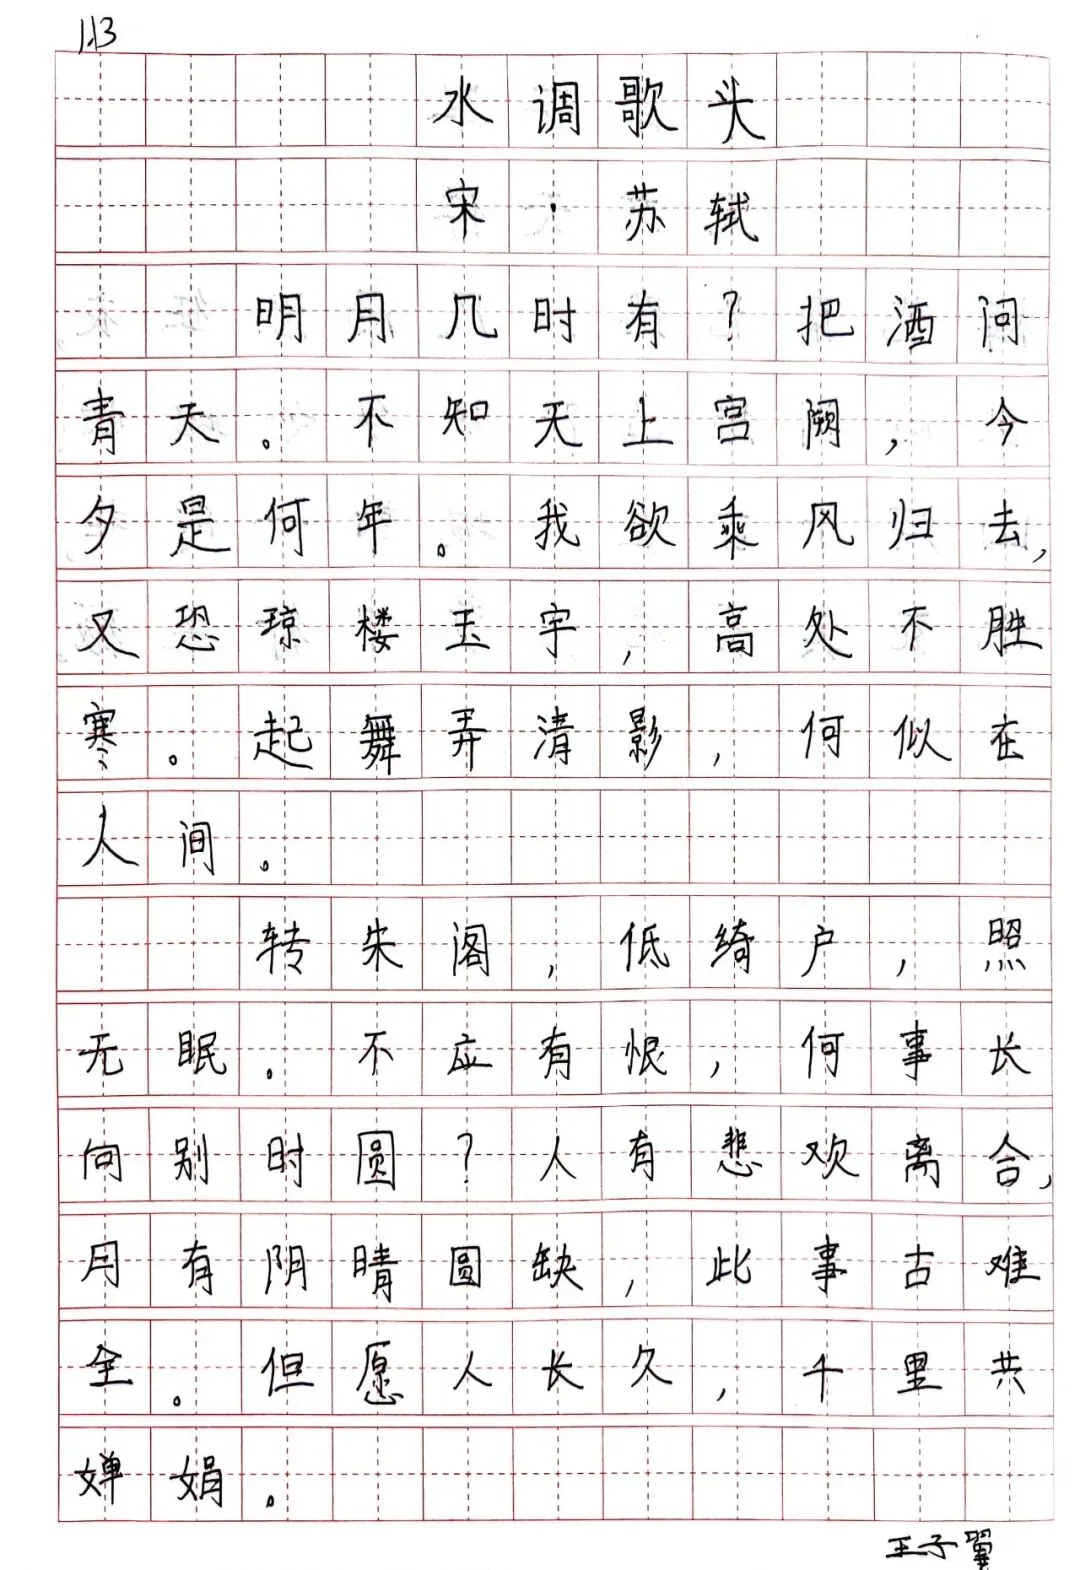 1.13
水调歌头
宋·苏轼
明月几时有？把酒问
青天。不知天上宫阙，今
夕是何年。我欲乘风归去，
又恐琼楼玉宇，高处不胜
寒。起舞弄清影，何似在
人间。
转朱阁，低绮户，照
无眠。不应有恨，何事长
向别时圆？人有悲欢离合，
月有阴晴圆缺，此事古难
全。但愿人长久，千里共
婵娟。
王子翼